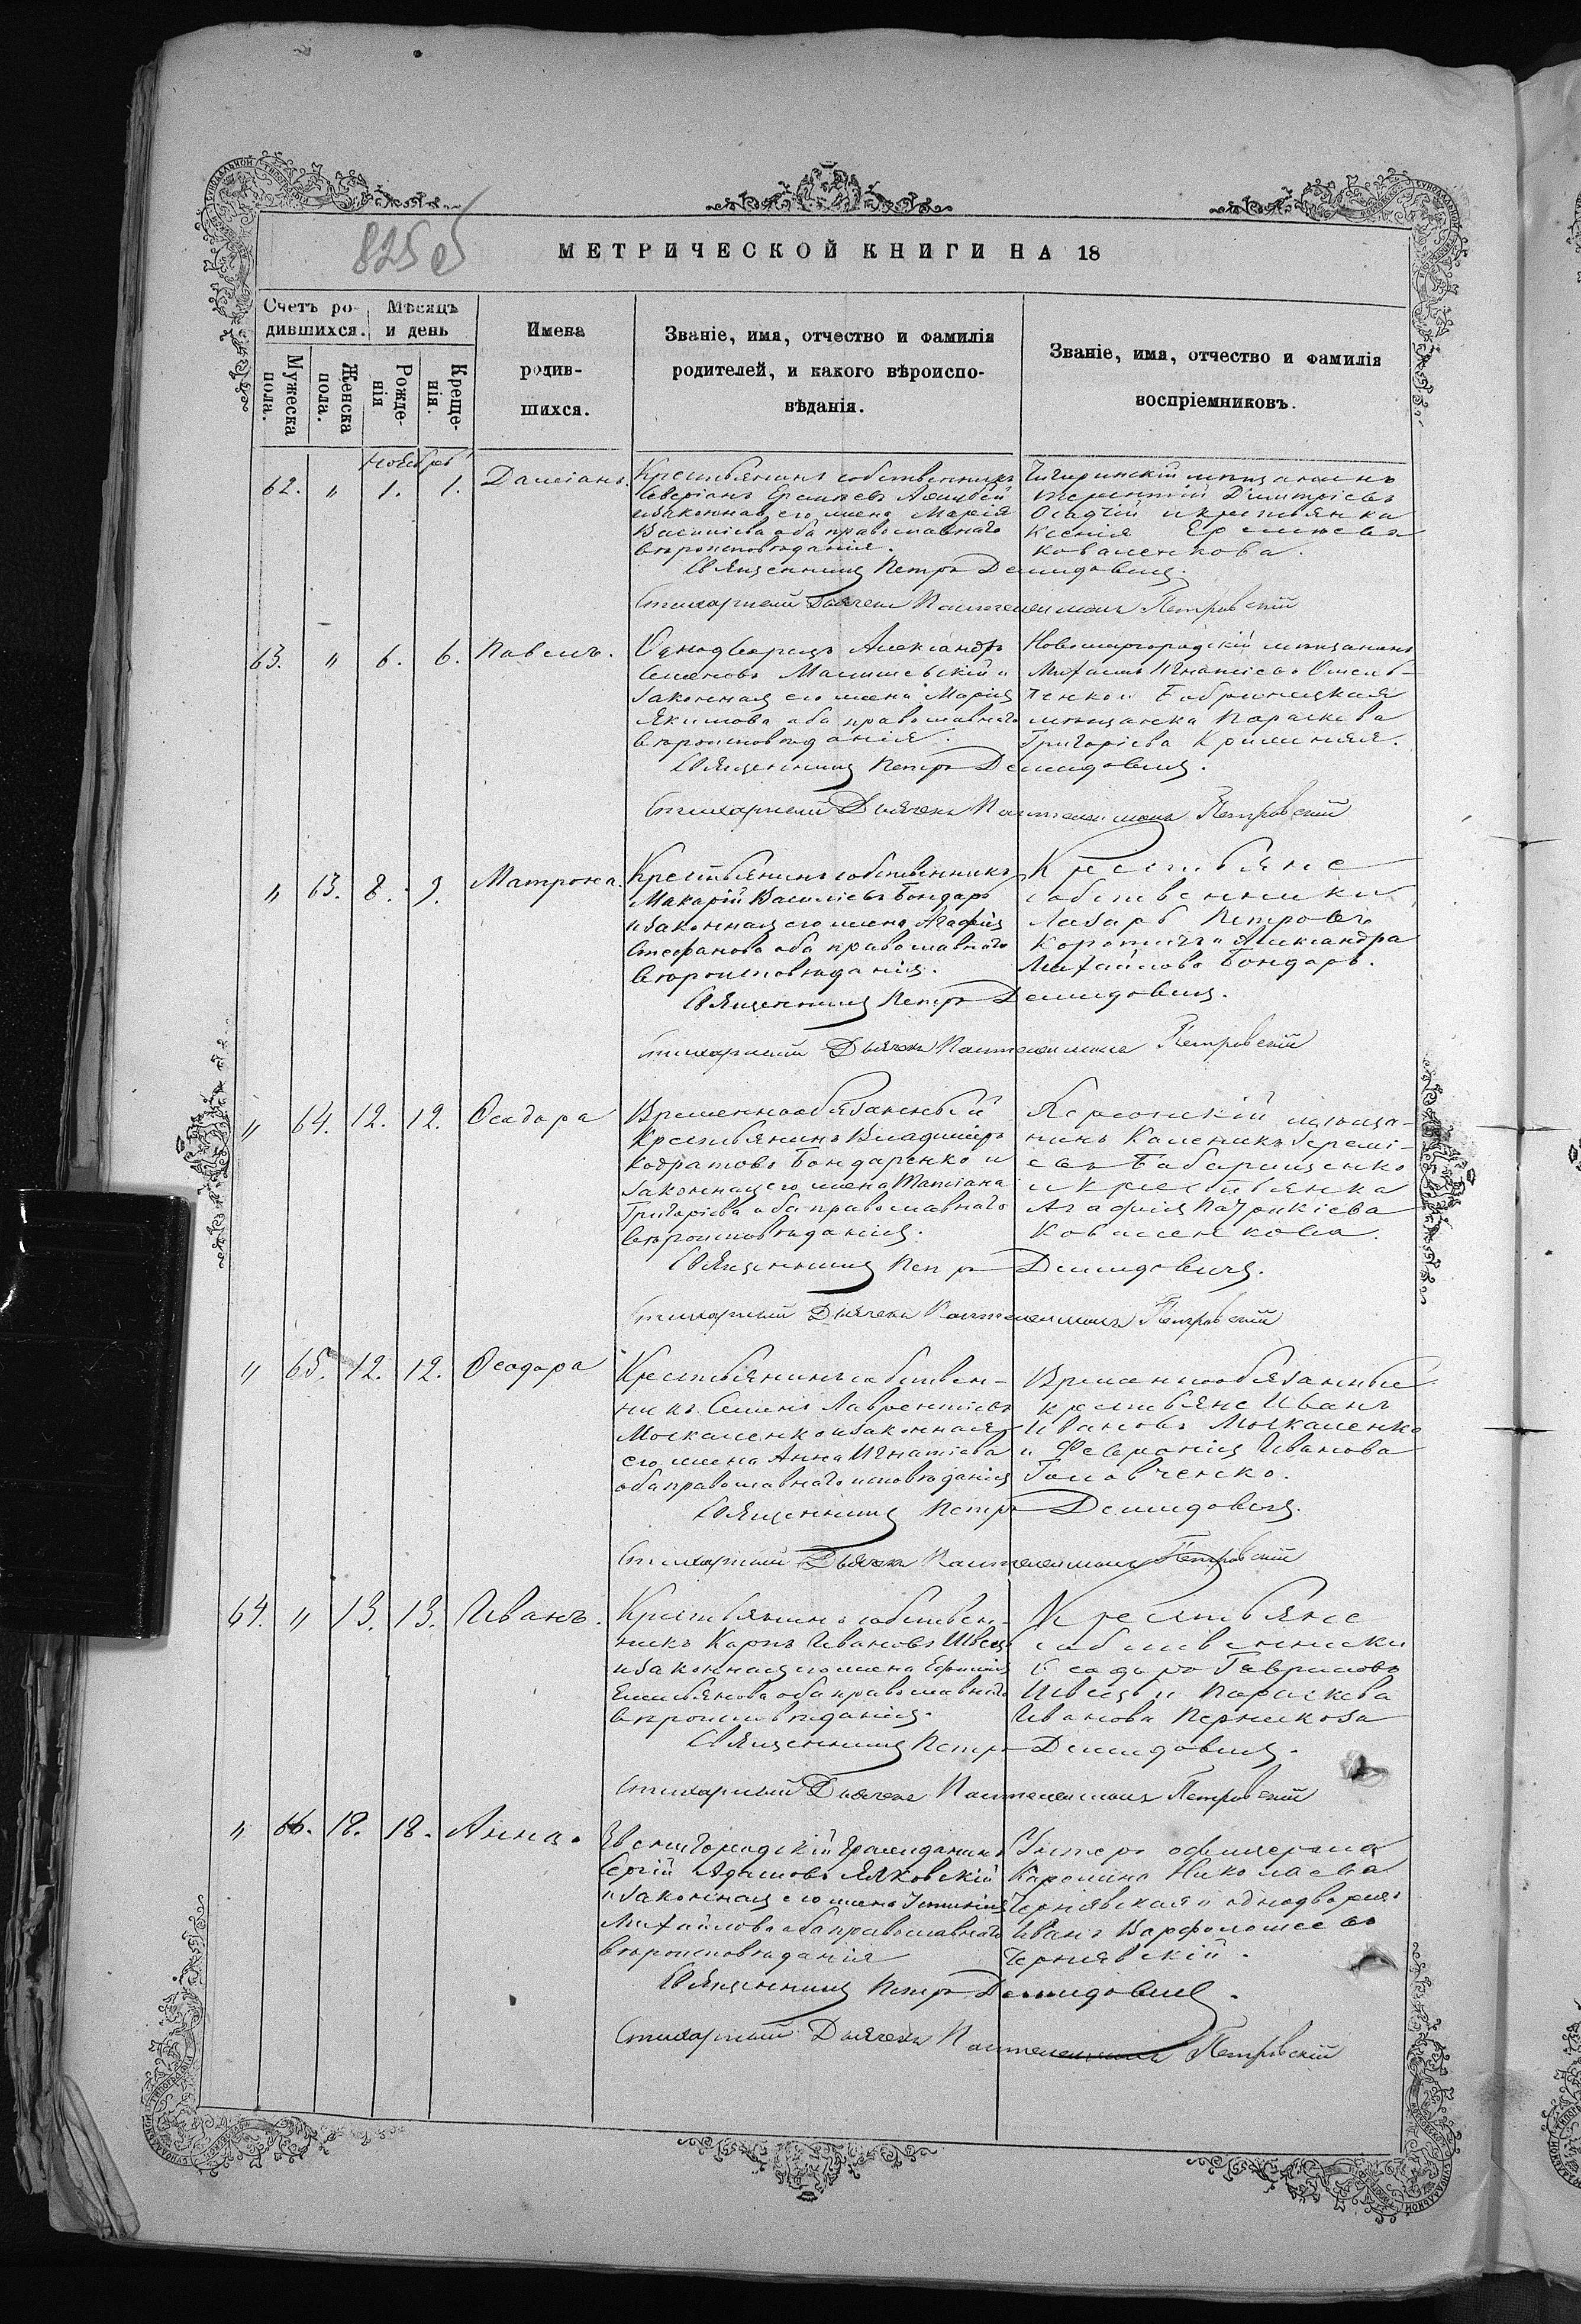 825об
МЕТРИЧЕСКОЙ КНИГИ НА 18
Счетъ родившихся.
Мѣсяцъ и день
Мужеска пола.
Женска пола.
Рожденія
Крещенія.
Имена
родив-
шихся.
Званіе, имя, отчество и фамилія
родителей, и какого вѣроиспо-
вѣданія.
Званіе, имя, отчество и фамилія
воспріемниковъ.
Ноябрь
62. " 1. 1. Даміанъ.
Крестьянинъ собственникъ
Северіанъ Ереміевъ
и законная его жена Марія
Василіева оба православнаго
вѣроисповѣданія.
Чигиринскій мѣщанинъ
Терентій Димитріевъ
Осадчій и крестьянка
Ксенія
Коваленкова.
Священникъ Петръ Демидовичъ.
Стихарный Дьячекъ Пантелеимонъ Петровскій
63. " 6. 6. Павелъ.
Однодворецъ Александръ
Семеновъ и
законная его жена Марія
Якимова оба православнаго
вѣроисповѣданія.
Новомиргородскій мѣщанинъ
Михаилъ Игнатіевъ Омель-
ченко и Бобринецкая
мѣщанка Параскева
Григоріева
Священникъ Петръ Демидовичъ.
Стихарный Дьячекъ Пантелеимонъ Петровскій
" 63. 8. 9. Матрона.
Крестьянинъ собственникъ
Макарій Василіевъ Бондарь
и законная его жена Агафія
Стефанова оба православнаго
вѣроисповѣданія.
Крестьяне
собственники
Лазарь Петровъ
и Александра
Михайлова Бондарь.
Священникъ Петръ Демидовичъ.
Стихарный Дьячекъ Пантелеимонъ Петровскій
" 64. 12. 12. Ѳеодора
Временнообязанный
Крестьянинъ Владиміръ
Кодратовъ Бондаренко и
законная его жена Татіана
Григоріева оба православнаго
вѣроисповѣданія.
Херсонскій мѣща-
нинъ Каленикъ Іеремі-
евъ
и крестьянка
Агафія Патрикіева
Коваленкова.
Священникъ Петръ Демидовичъ.
Стихарный Дьячекъ Пантелеимонъ Петровскій
" 65. 12. 12. Ѳеодора
Крестьянинъ собствен-
никъ Семенъ Лаврентіевъ
Москаленко и законная
его жена Анна Игнатіева
оба православнаго исповѣданія
Временнообязанные
крестьяне Иванъ
Ивановъ Москаленко
и Февронія Иванова
Головченко.
Священникъ Петръ Демидовичъ.
Стихарный Дьячекъ Пантелеимонъ Петровскій
64. " 13. 13. Иванъ.
Крестьянинъ собствен-
никъ Карпъ Ивановъ Швецъ
и законная его жена Евфимія
Емельянова оба православнаго
вѣроисповѣданія.
Крестьяне
собственники
Ѳеодоръ Гавриловъ
Швецъ и Параскева
Иванова
Священникъ Петръ Демидовичъ.
Стихарный Дьячекъ Пантелеимонъ Петровскій
" 66. 18. 18. Анна.
Звенигородскій гражданинъ
Сергій Адамовъ
и законная его жена Устинія
Михайлова оба православнаго
вѣроисповѣданія
Унтеръ офицерша
Каролина Николаева
Чернявская и однодворецъ
Иванъ Варфоломеевъ
Чернявскій.
Священникъ Петръ Демидовичъ.
Стихарный Дьячекъ Пантелеимонъ Петровскій